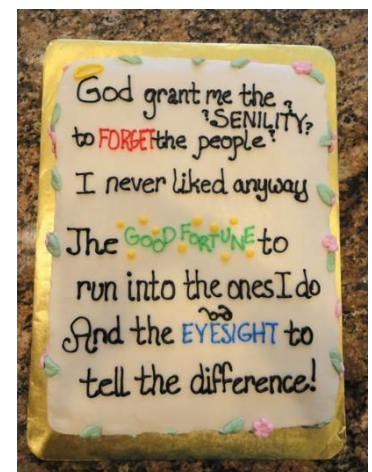 God grant me the
?SENILITY?
to FORGET the people
I never liked anyway
The GOOD FORTUNE to
run into the ones I do
And the EYESIGHT to
tell the difference!